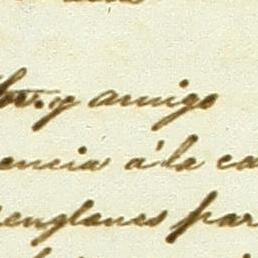 y amigo
encia á la ca
renglones par